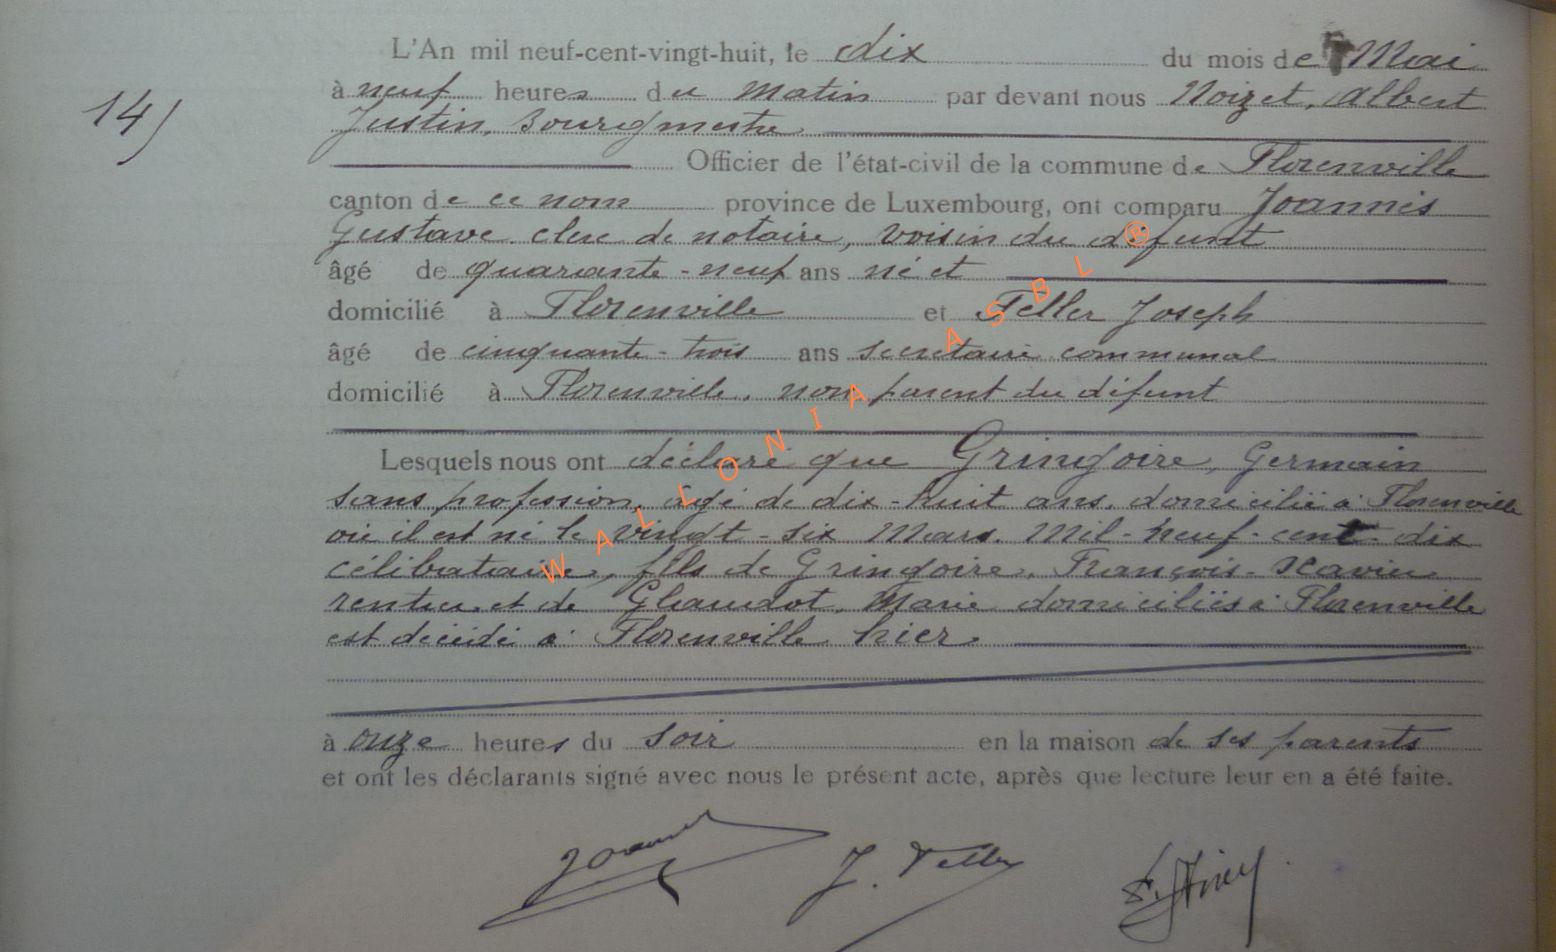 L'An mil neuf-cent-vingt-huit, le dix du mois de Mai
14)
à neuf heures du matin par devant nous Noizet, Albert
Justin, Bourgmestre
Officier de l'état-civil de la commune de Florenville
canton de ce nom province de Luxembourg, ont comparu Joannes
Gustave clerc de notaire, voisin du défunt
âgé de quarante-neuf ans né et
domicilié à Florenville et Feller Joseph
âgé de cinquante-trois ans secrétaire communal
domicilié à Florenville, non parent du défunt
Lesquels nous ont déclaré que Gringoire, Germain
sans profession, âgé de dix-huit ans, domicilié à Florenville
où il est né le vingt-six Mars. Mil-neuf-cent-dix
célibataire, fils de Gringoire, François-Xavier
rentier et de Glaudot, Marie domiciliés à Florenville
est décédé à Florenville hier
à onze heures du soir en la maison de ses parents
et ont les déclarants signé avec nous le présent acte, après que lecture leur en a été faite.
J. Feller
WALLONIA ASBL ®